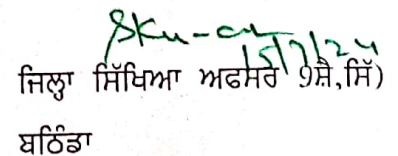 15/7/24
ਜਿਲ੍ਹਾ ਸਿੱਖਿਆ ਅਫਸਰ 9ਸ਼ੈ,ਸਿੱ)
ਬਠਿੰਡਾ